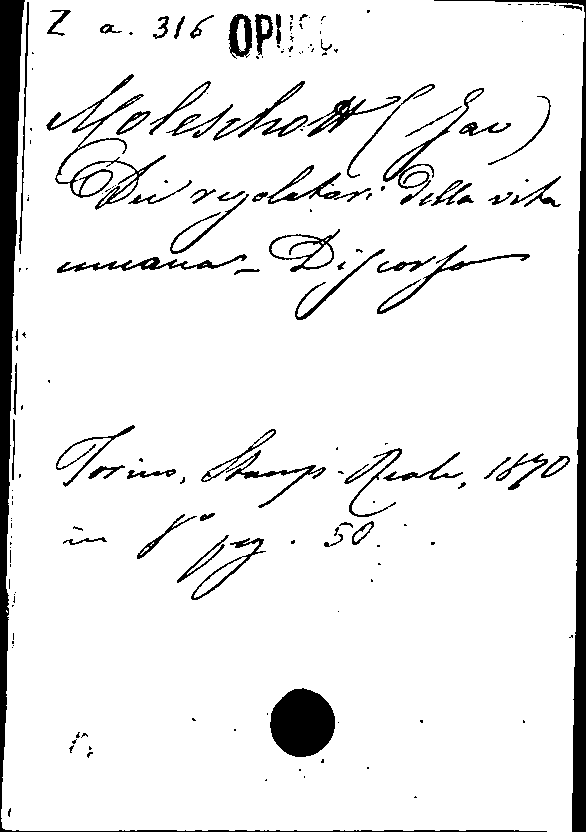 Z a. 316 OPUSC.
Moleschott (Jac)
Dei regolatori della vita
umana - Discorso
Torino, Stamp. Reale, 1870
in 8° pag. 50.